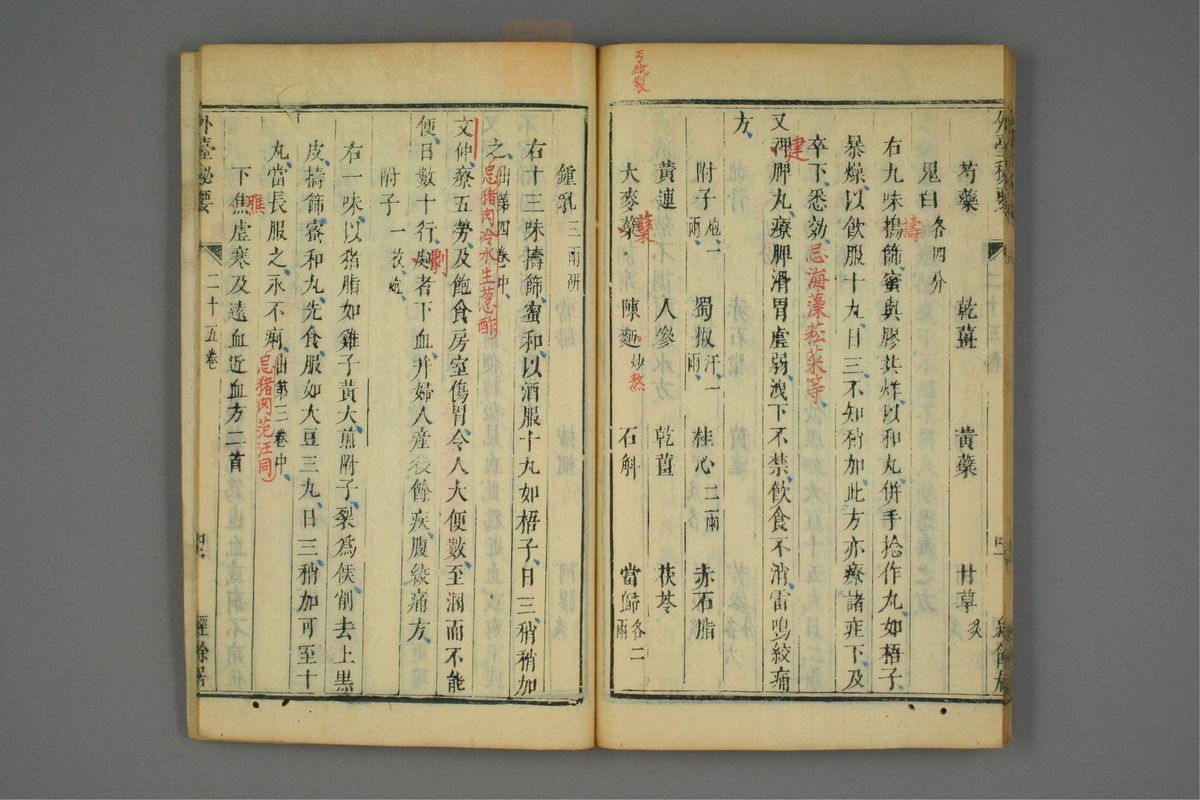 丐紙裂
芍藥 乾薑 黃蘗 甘草炙
鬼臼各四分
右九味搗篩蜜與膠共烊以和丸併手捻作丸如梧子
擣
暴燥以飲服十丸日三不知稍加此方亦療諸疰下及
卒下悉効忌海藻菘菜等
又裨脾丸療脾滑胃虛弱洩下不禁飲食不消雷鳴絞痛
建
方
附子炮一兩 蜀椒汗一兩 桂心二兩 赤石脂
黃連 人參 乾薑 茯苓
大麥蘖 陳麵炒熬 石斛 當歸各二兩
蘗
鍾乳三兩研
右十三味擣篩蜜和以酒服十丸如梧子日三稍加
之出第四卷中忌猪肉冷水生葱酢
文仲療五勞及飽食房室傷胃令人大便數至溷而不能
便日數十行劇者下血并婦人產後餘疾腹絞痛方
劇
附子一枚炮
右一味以猪脂如雞子黃大煎附子裂爲候削去上黑
皮擣篩蜜和丸先食服如大豆三丸日三稍加可至十
丸當長服之永不痢出第三卷中忌猪肉范汪同
下焦虛寒及遠血近血方二首
焦
外臺秘要 二十五卷 經餘居